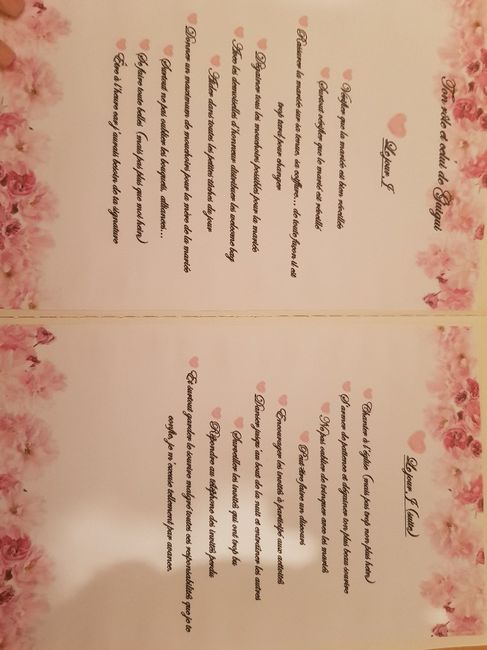 Ton rôle et celui de Guigui
Le jour J
Vérifier que la mariée est bien réveillée
Surtout vérifier que le marié est réveillé
Rassurer la mariée sur sa tenue, sa coiffure... de toute façon il est
trop tard pour changer
Dégainer tous les mouchoirs possibles pour la mariée
Avec les demoiselles d'honneur distribuer les welcome bag
Aider dans toutes les petites tâches du jour
Donner un maximum de mouchoirs pour la mère de la mariée
Surtout ne pas oublier les bouquets, alliances...
Se faire toute belles (mais pas plus que moi hein)
Être à l'heure car j'aurais besoin de ta signature
Le jour J (suite)
Chanter à l'église (mais pas trop non plus hein)
S'armer de patience et dégainer ton plus beau sourire
Ne pas oublier de trinquer avec les mariés
Peut être faire un discours
Encourager les invités à participé aux activités
Danser jusqu'au bout de la nuit et entraîner les autres
Surveiller les invités qui ont trop bu
Répondre au téléphone des invités perdu
Et surtout garder le sourire malgré toutes ces responsabilités que je te
confie, je m'excuse tellement par avance.